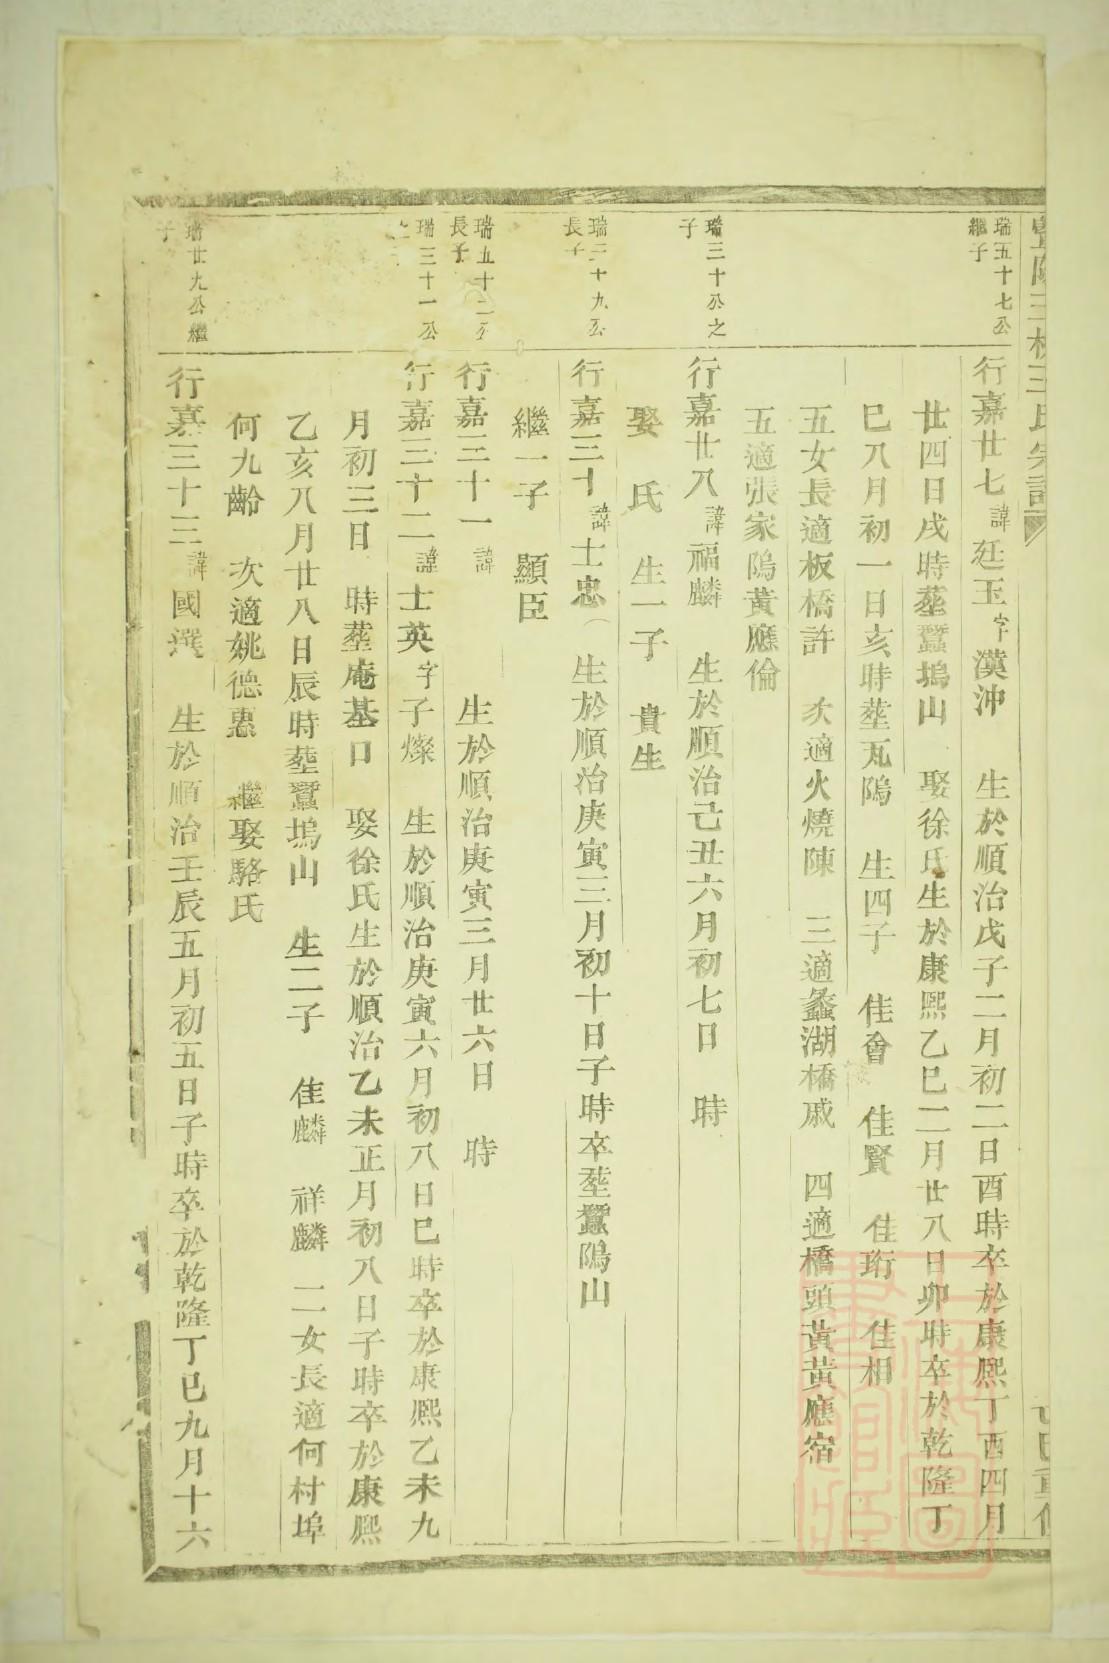 瑞五十七公
繼子
行嘉廿七諱廷玉字漢沖 生於順治戊子二月初二日酉時卒於康熙丁酉四月
廿四日戌時塟蠶塢山 娶徐氏生於康熙乙巳二月廿八日卯時卒於乾隆丁
巳八月初一日亥時塟瓦隖 生四子 佳會 佳賢 佳珩 佳相
五女長適板橋許 次適火燒陳 三適蠡湖橋戚 四適橋頭黃黃應宿
五適張家隖黃應倫
瑞三十公之
子
行嘉廿八諱福麟 生於順治己丑六月初七日 時
娶 氏 生一子 貴生
瑞三十九公
長子
行嘉三十諱士忠 生於順治庚寅三月初十日子時卒塟蠶隖山
繼一子 顯臣
瑞五十二公
長子
行嘉三十一諱 生於順治庚寅三月廿六日 時
瑞三十一公
行嘉三十二諱士英字子燦 生於順治庚寅六月初八日巳時卒於康熙乙未九
月初三日 時塟庵基口 娶徐氏生於順治乙未正月初八日子時卒於康熙
乙亥八月廿八日辰時塟蠶塢山 生二子 佳麟 祥麟 二女長適何村埠
何九齡 次適姚德惠 繼娶駱氏
瑞廿九公繼
子
行嘉三十三諱國選 生於順治壬辰五月初五日子時卒於乾隆丁巳九月十六